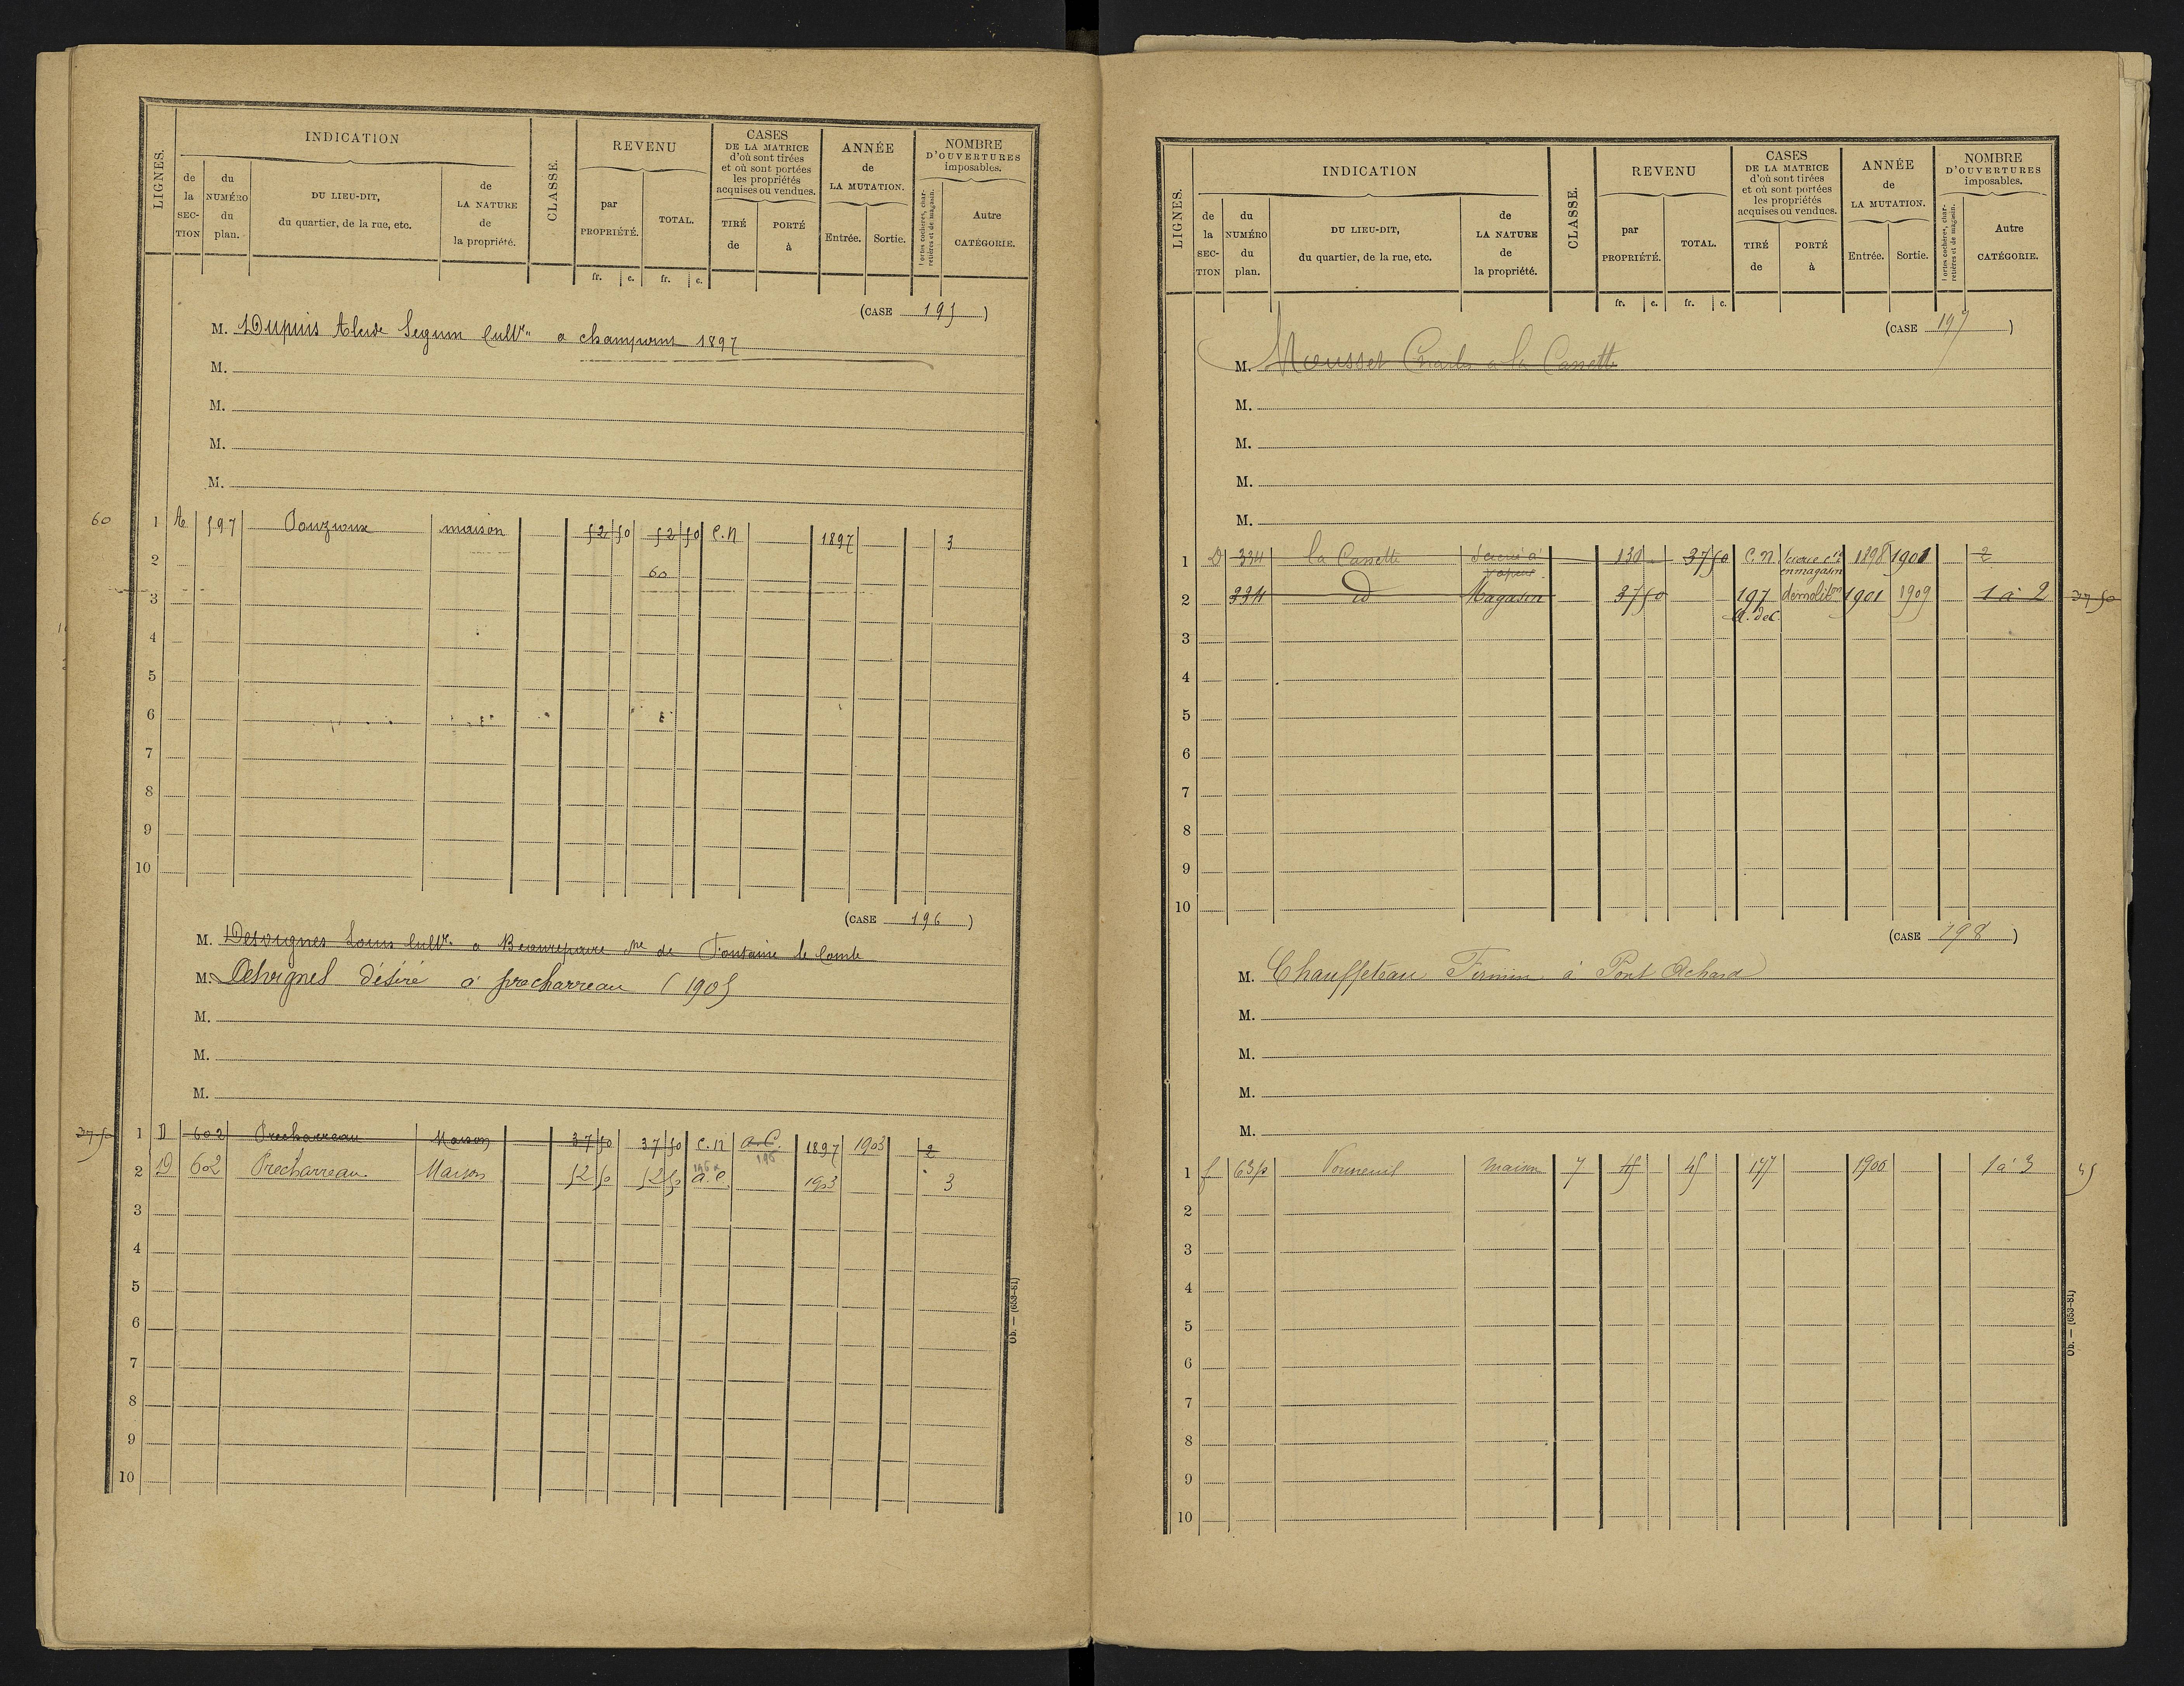 LIGNES.
INDICATION
de la SEC-TION
du NUMÉRO du plan.
DU LIEU-DIT, du quartier, de la rue, etc.
de LA NATURE de la propriété.
CLASSE.
REVENU
par PROPRIÉTÉ.
TOTAL.
fr. c. fr. c.
CASES DE LA MATRICE d'où sont tirées et où sont portées les propriétés acquises ou vendues.
TIRÉ de
PORTÉ à
ANNÉE de LA MUTATION.
Entrée. Sortie.
NOMBRE D'OUVERTURES imposables.
Portes cochères, charretières et de magasin.
Autre CATÉGORIE.
(CASE 195)
M. Dupuis Alcide Seguin Cultr a 1897
M.
M.
M.
M.
60 1 A 597 Pouzioux maison 52 50 52 50 C.N 1897 3
2 60
3
4
5
6
7
8
9
10
(CASE 196)
M. Desvignes Louis Cultr a Beaurepaire de Fontaine le Comte
M. Desvignes désiré à precharreau (1905
M.
M.
M.
37 50 1 D 602 Precharreau Maison 37 50 37 50 C.N a.C. 196 1897 1903 2
2 D 602 Precharreau Maison 52 50 52 50 196 a.C. 1903 3
3
4
5
6
7
8
9
10
Ob. — (653-81)
LIGNES.
INDICATION
de la SEC-TION
du NUMÉRO du plan.
DU LIEU-DIT, du quartier, de la rue, etc.
de LA NATURE de la propriété.
CLASSE.
REVENU
par PROPRIÉTÉ.
TOTAL.
fr. c. fr. c.
CASES DE LA MATRICE d'où sont tirées et où sont portées les propriétés acquises ou vendues.
TIRÉ de
PORTÉ à
ANNÉE de LA MUTATION.
Entrée. Sortie.
NOMBRE D'OUVERTURES imposables.
Portes cochères, charretières et de magasin.
Autre CATÉGORIE.
(CASE 197)
M. Mousset Charles a la Cassette
M.
M.
M.
M.
1 D 334 la Cassette Scierie à vapeur 130 37 50 C.N en magasin 1898 1901 2
2 334 d Magasin 37 50 197 d. dec. demolit.on 1901 1909 1 à 2 37 50
3
4
5
6
7
8
9
10
(CASE 198)
M. Chauffeteau Firmin à Pont Achard
M.
M.
M.
M.
1 f 63p Verneuil maison 7 45 45 177 1900 1 à 3 45
2
3
4
5
6
7
8
9
10
Ob. — (653-81)